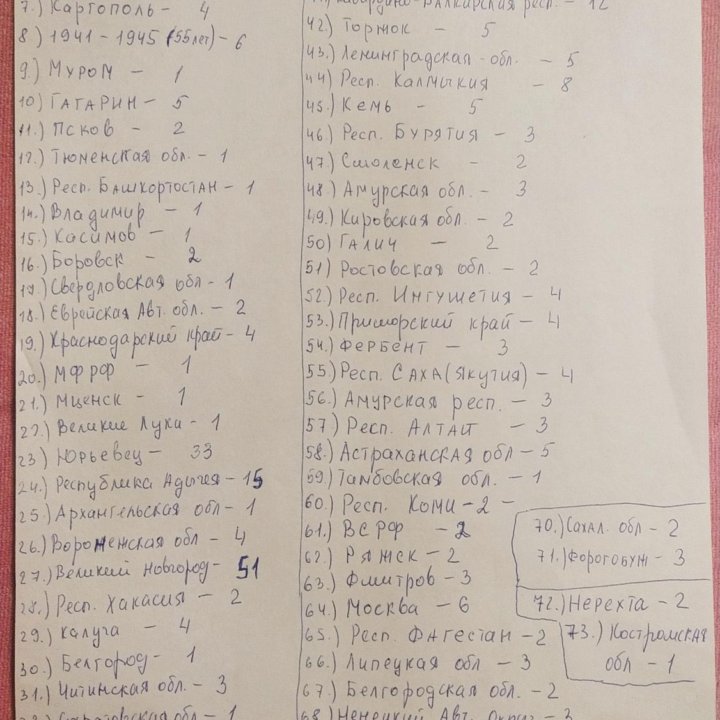 7.) Каргополь - 4
8.) 1941 - 1945 (55 лет) - 6
9.) Муром - 1
10) Гагарин - 5
11.) Псков - 2
12.) Тюменская обл. - 1
13.) Респ. Башкортостан - 1
14.) Владимир - 1
15.) Касимов - 1
16.) Боровск - 2
17.) Свердловская обл - 1
18.) Еврейская Авт. обл. - 2
19.) Краснодарский край - 4
20.) МФ РФ - 1
21.) Мценск - 1
22.) Великие Луки - 1
23) Юрьевец - 33
24.) Республика Адыгея - 15
25.) Архангельская обл - 1
26.) Воронежская обл - 4
27.) Великий Новгород - 51
28.) Респ. Хакасия - 2
29.) Калуга - 4
30.) Белгород - 1
31.) Читинская обл. - 3
Саратовская обл - 1
Кабардино-Балкарская респ. - 12
42.) Торжок - 5
43.) Ленинградская обл. - 5
44) Респ. Калмыкия - 8
45.) Кемь - 5
46.) Респ. Бурятия - 3
47) Смоленск - 2
48) Амурская обл. - 3
49.) Кировская обл. - 2
50) Галич - 2
51) Ростовская обл. - 2
52.) Респ. Ингушетия - 4
53.) Приморский край - 4
54.) Фербент - 3
55.) Респ. Саха (Якутия) - 4
56.) Амурская респ. - 3
57) Респ. Алтай - 3
58.) Астраханская обл - 5
59.) Тамбовская обл. - 1
60.) Респ. Коми - 2 -
61.) ВС РФ - 2
62.) Ряжск - 2
63.) Фмитров - 3
64.) Москва - 6
65.) Респ. Фагестан - 2
66.) Липецкая обл - 3
67.) Белгородская обл. - 2
68.) Ненецкий Авт. Округ - 3
70.) Сахал. обл - 2
71.) Форогобуж - 3
72.) Нерехта - 2
73.) Костромская
обл - 1